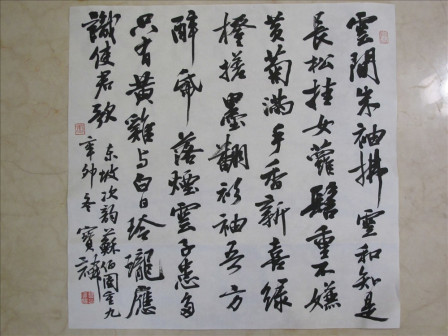 雲間朱袖拂雲和知是
長松挂女蘿髻重不嫌
黄菊滿手香新喜緑
橙搓墨翻衫袖吾方
醉紙落煙雲子患多
只有黃雞与白日玲瓏應
識使君歌
东坡次韵蘇伯固重九
辛卯冬 寶